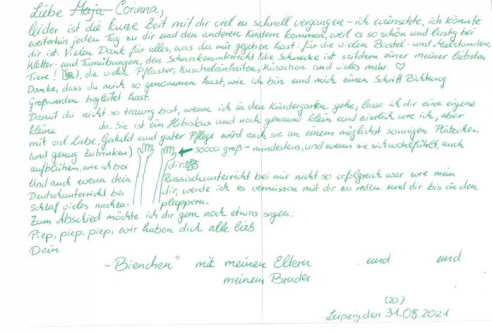 Liebe Maja Corvina,
leider ist die kurze Zeit mit dir viel zu schnell vergangen - ich wünschte, ich könnte
weiterhin jeden Tag zu dir und den anderen Kindern kommen, weil es so schön und lustig bei
dir ist. Vielen Dank für alles, was du mir gegeben hast: für die vielen Bastel- und Malstunden,
Kletter- und Turnübungen, den Schneckenunterricht (die Schnecke ist seitdem einer meiner liebsten
Tiere!), die vielen Pflaster, Kuscheleinheiten, Küsschen und vieles mehr. ♡
Danke, dass du mich so genommen hast, wie ich bin und mich einen Schritt Richtung
Großwerden begleitet hast.
Damit du nicht so traurig bist, wenn ich in den Kindergarten gehe, lasse ich dir eine eigene
kleine da. Sie ist ein Hibiskus und noch genauso klein und zierlich wie ich, aber
mit viel Liebe, Geduld und guter Pflege wird auch sie an einem möglichst sonnigen Plätzchen
(und genug zu trinken) soooo groß - mindestens, und wenn sie sich wohlfühlt, auch
aufblühen, wie ich bei dir.
Und auch wenn dein Russischunterricht bei mir nicht so erfolgreich war wie mein
Deutschunterricht bei dir, werde ich es vermissen mit dir zu reden und dir bis in den
Schlaf vieles nachzuplappern.
Zum Abschied möchte ich dir gern noch etwas sagen:
Piep, piep, piep, wir haben dich alle lieb
Dein
-Bienchen" mit meinen Eltern und und
meinem Bruder
(20.)
Leipzig, den 31.08.2021